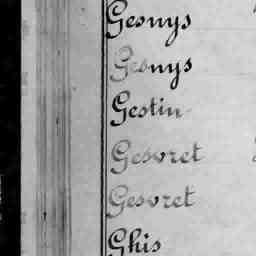 Gesnys
Gesnys
Gestin
Gesvret
Gesvret
Ghis